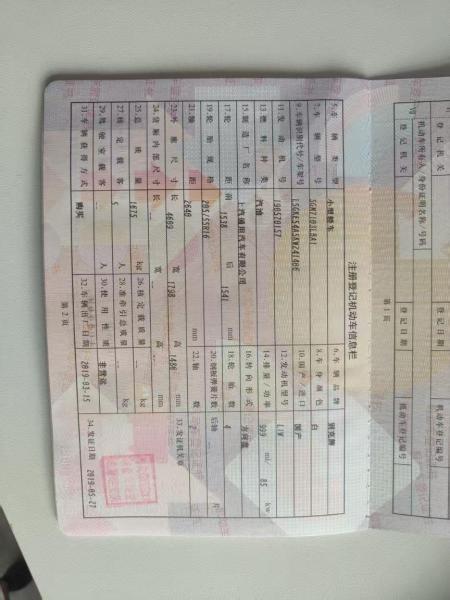 注册登记机动车信息栏
5.车辆类型 小型轿车 6.车辆品牌 别克牌
7.车辆型号 SGM7103LBA1 8.车身颜色 白
9.车辆识别代号/车架号 10.国产/进口 国产
11.发动机号 190570157 12.发动机型号 LIW
13.燃料种类 汽油 14.排量/功率 999 ml/ 85 kw
15.制造厂名称 上汽通用汽车有限公司 16.转向形式 方向盘
17.轮距 前 1538 后 1541 mm 18.轮胎数 4
19.轮胎规格 205/55R16 20.钢板弹簧片数 后轴 片
21.轴距 2640 mm 22.轴数 2
23.外廓尺寸 长 4609 宽 1798 高 1486 mm 33.发证机关章
24.货厢内部尺寸 长 宽 高 mm
25.总质量 1675 kg 26.核定载质量 kg
27.核定载客 5 人 28.准牵引总质量 kg
29.驾驶室载客 人 30.使用性质 非营运
31.车辆获得方式 购买 32.车辆出厂日期 2019-03-15 34.发证日期 2019-05-27
第2页
机动车所有人/身份证明名称/号码
登记机关 登记日期 机动车登记编号
登记机关 登记日期 机动车登记编号
第1页